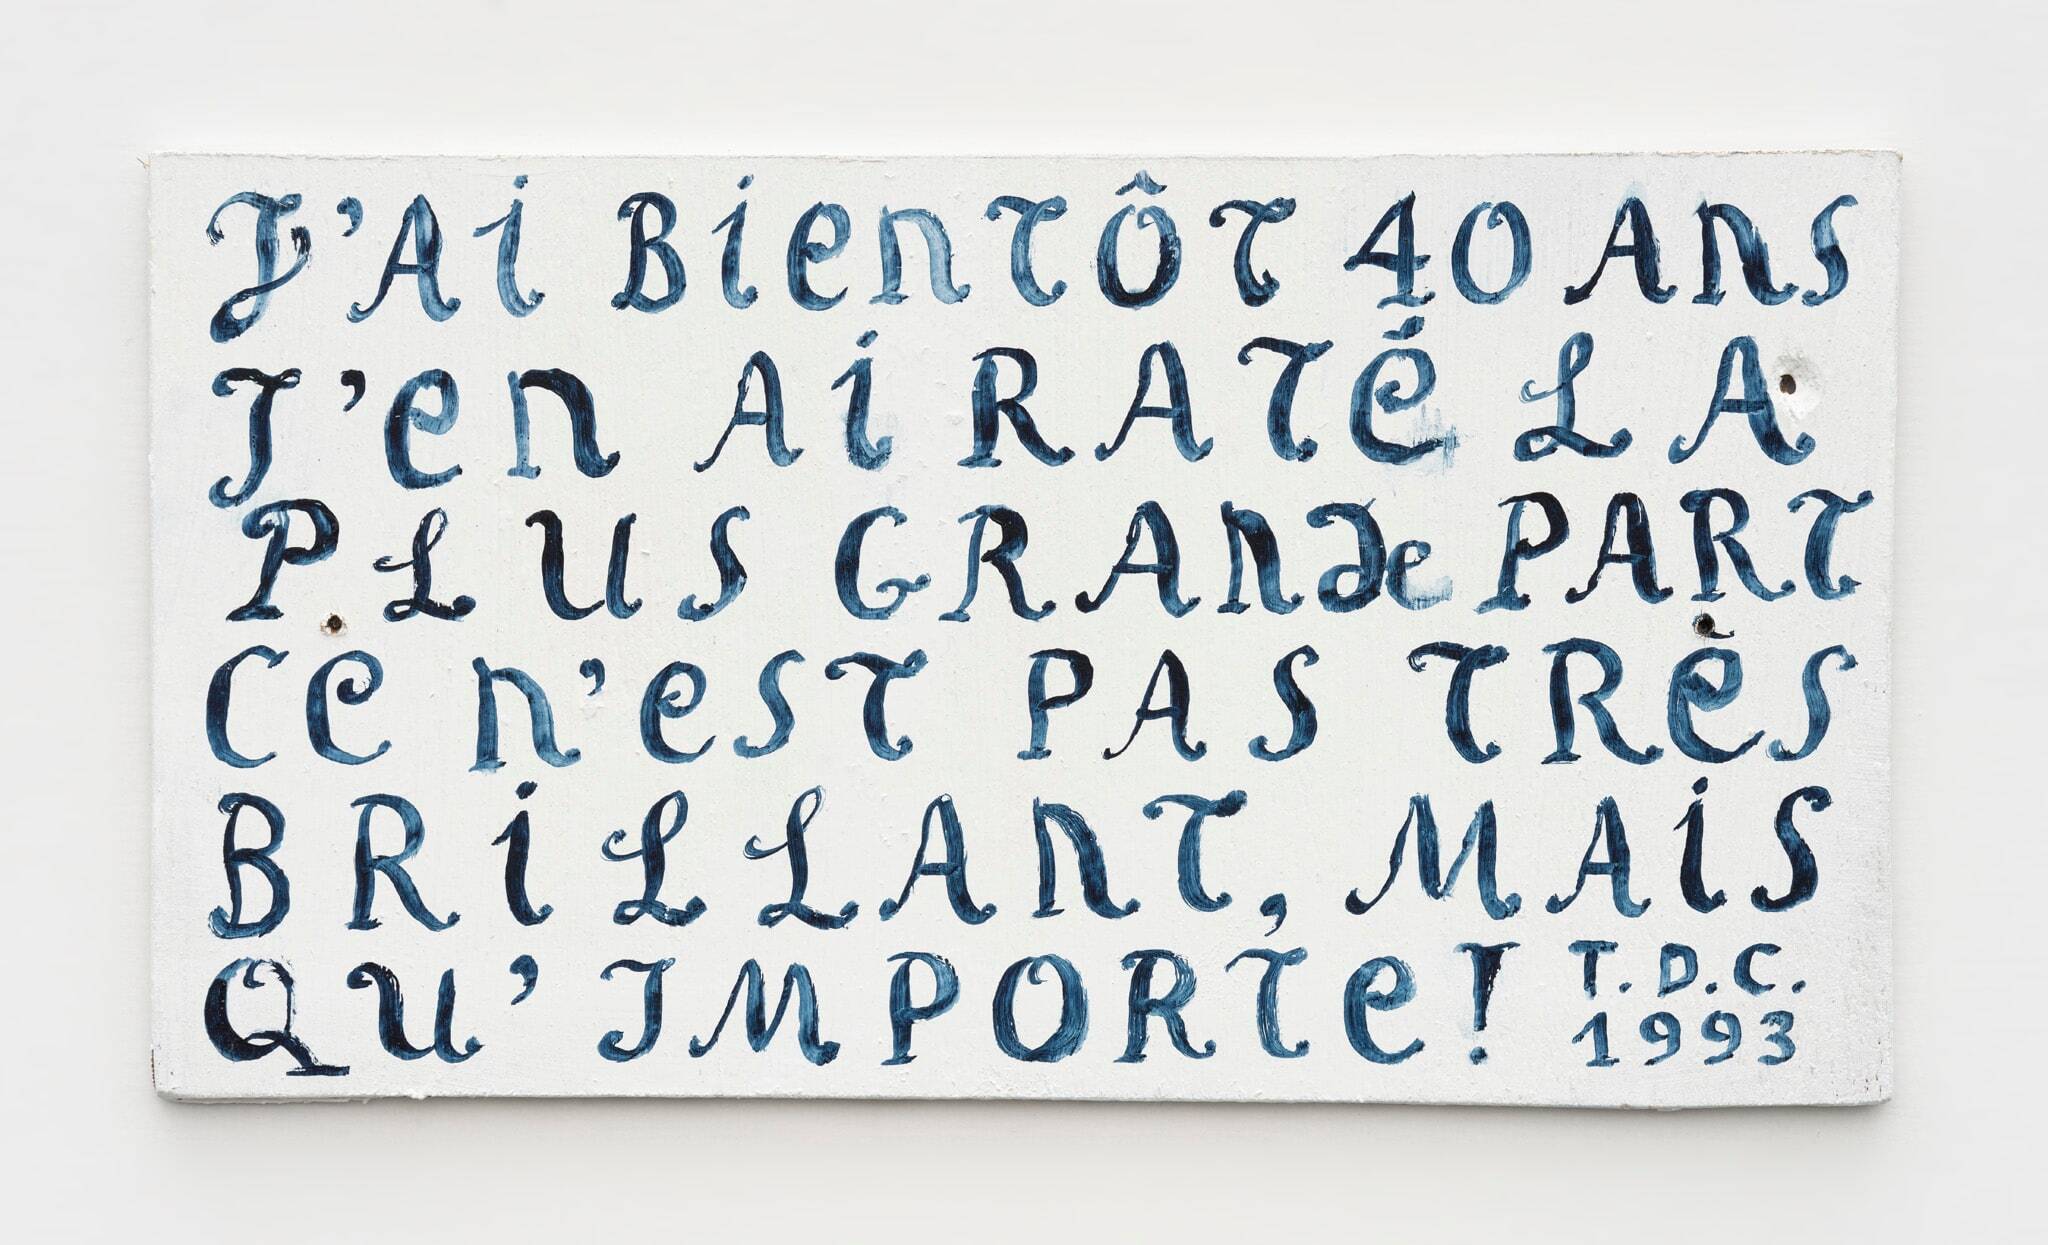 J'Ai BienTÔT 40 Ans
J'en Ai RATé LA
PLUS GRAnde PART
Ce n'esT PAS TRèS
BRiLLAnT, MAiS
QU'IMPORTe! T.D.C.
1993